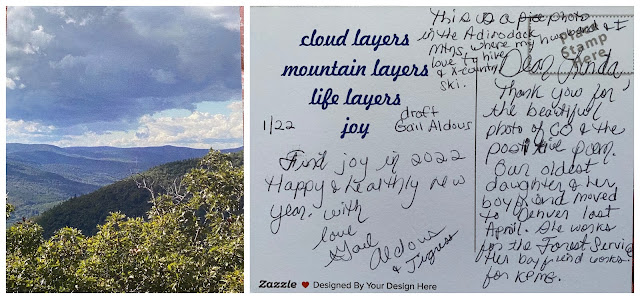 This is a pic photo
in the Adirondack
mtns, where my husband & I
love to hike
& x-country
ski.
Place
Stamp
Here
cloud layers
mountain layers
life layers
joy
1/22
draft
Gail Aldous
Find joy in 2022
Happy & healthly new
year. with
love
Gail Aldous
&
Dear Linda,
Thank you for
the beautiful
photo of CO & the
positive poem.
Our oldest
daughter & her
boyfriend moved
to Denver last
April. She works
for the Forest Service
Her boyfriend works
for KPMG.
Zazzle ♥ Designed By Your Design Here